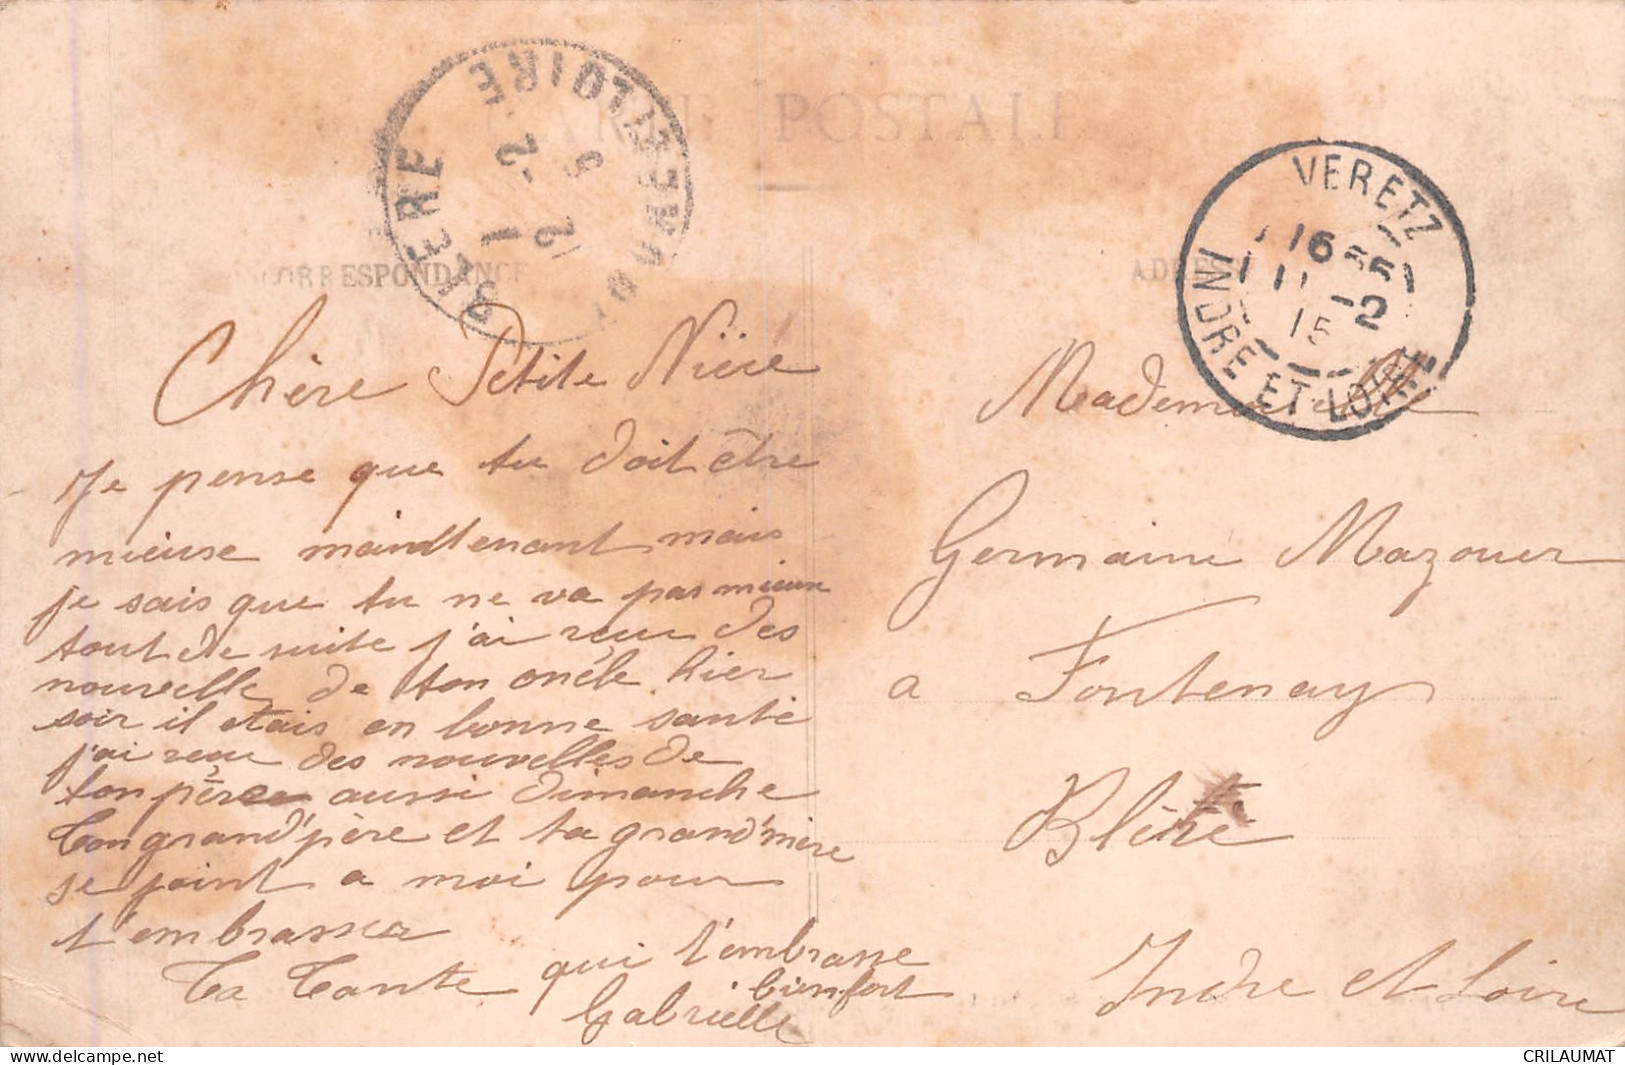 CARTE POSTALE
CORRESPONDANCE
ADRESSE
BLÉRÉ INDRE-ET-LOIRE
12 - 2
VERETZ
INDRE ET LOIRE
16
11 -2
15
Chère Petite Nièce
Je pense que tu doit être
mieuse maintenant mais
je sais que tu ne va pas mieux
tout de suite j'ai reçu des
nouvelle de ton oncle hier
soir il etais en bonne santé
j'ai reçu des nouvelles de
ton père aussi dimanche
Ton grand'père et ta grand'mère
se joint a moi pour
t'embrasser
Ta Tante qui t'embrasse
bien fort
Gabrielle
Mademoiselle
Germaine Mazouer
a Fontenay
Bléré
Indre et Loire
CRILAUMAT